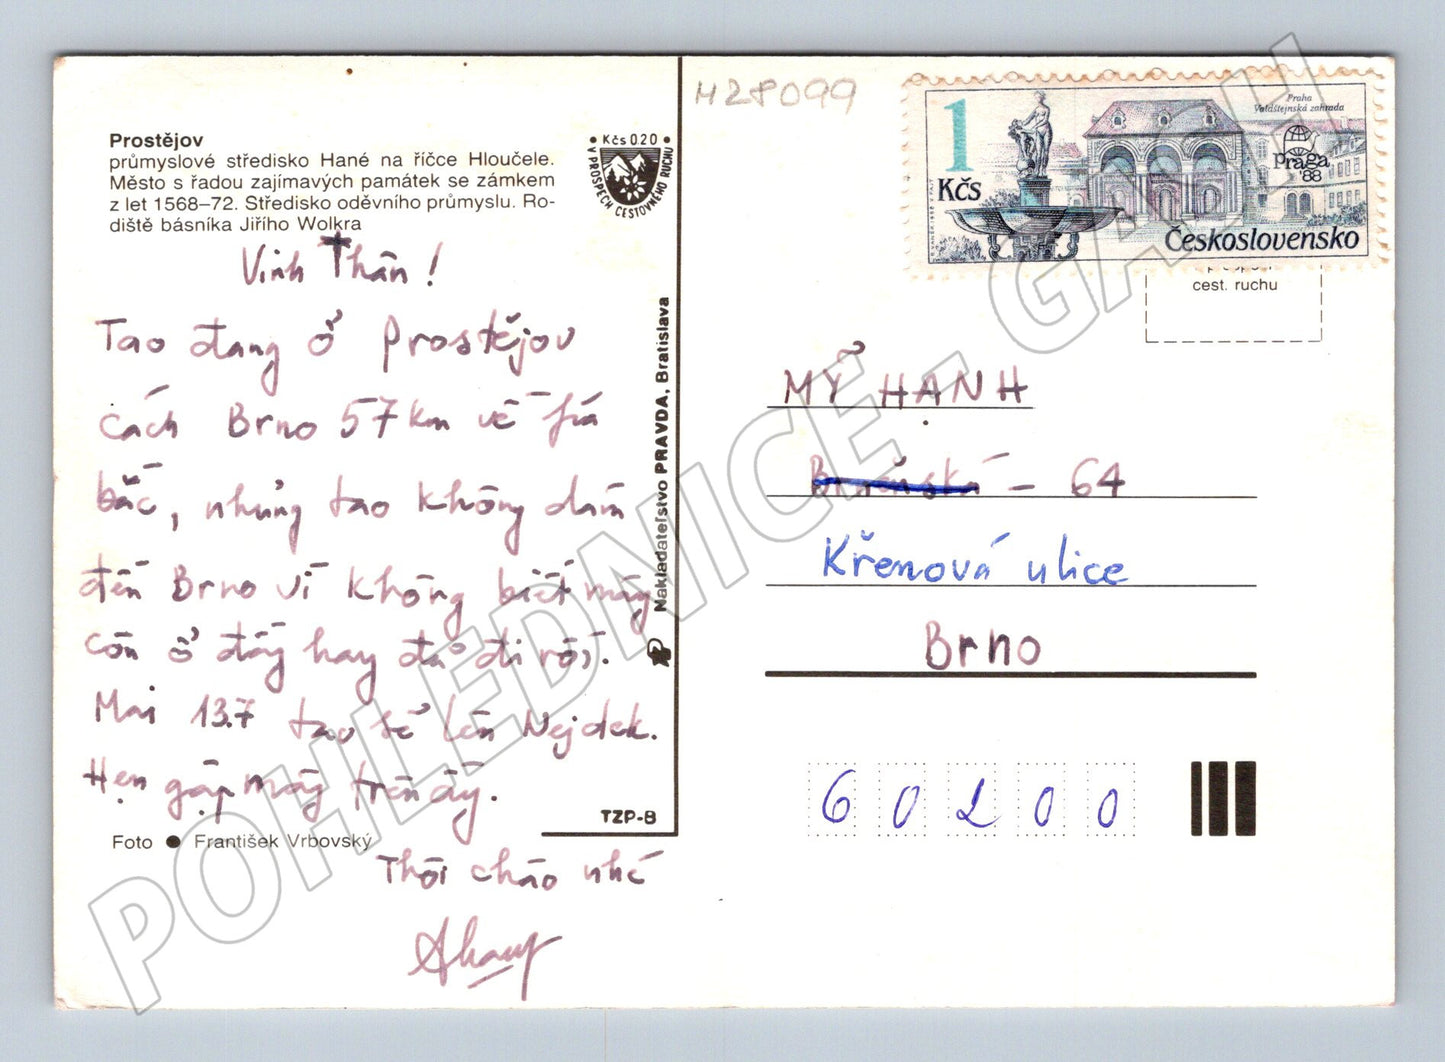 Prostějov
průmyslové středisko Hané na říčce Hloučele.
Město s řadou zajímavých památek se zámkem
z let 1568–72. Středisko oděvního průmyslu. Ro-
diště básníka Jiřího Wolkra
• Kčs 0.20 •
V PROSPECH CESTOVNÉHO RUCHU
Vinh Thân!
Tao đang ở Prostějov
cách Brno 57 km về fiá
bắc, nhưng tao không dám
đến Brno vì không biết mày
còn ở đấy hay đã đi rồi.
Mai 13.7 tao về lên Nejdek.
Hẹn gặp mày trên đấy.
Thôi chào nhé
Foto ● František Vrbovský
TZP-8
Nakladateľstvo PRAVDA, Bratislava
M28099
1 Kčs
Praha
Valdštejnská zahrada
praga '88
Československo
cest. ruchu
MỸ HẠNH
Brněnská – 64
Křenová ulice
Brno
60200
POHLEDNICE - GASH